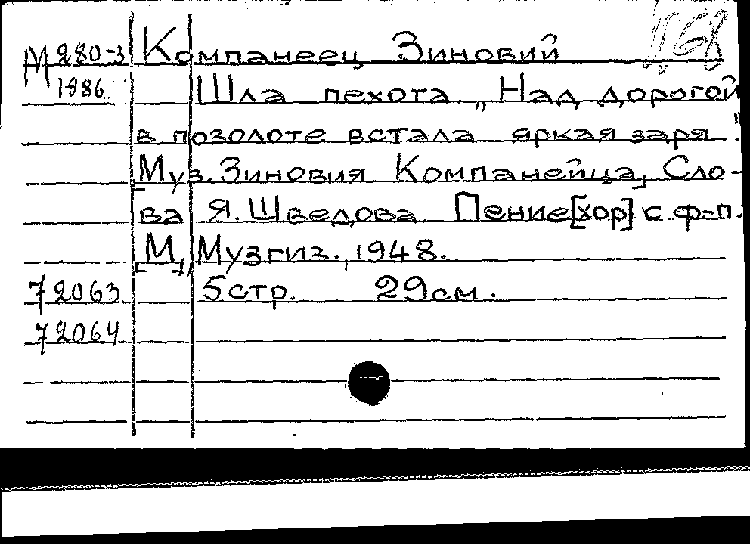 М 280-3 Компанеец Зиновий
1986 Шла пехота „Над дорогой
в позолоте встала яркая заря".
Муз. Зиновия Компанейца, Сло-
ва Я. Шведова. Пение [хор] с ф-п.
[М.], Музгиз, 1948.
72063 5 стр. 29 см.
72064